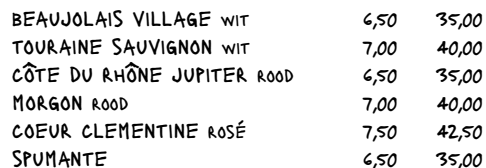 BEAUJOLAIS VILLAGE WIT 6,50 35,00
TOURAINE SAUVIGNON WIT 7,00 40,00
CÔTE DU RHÔNE JUPITER ROOD 6,50 35,00
MORGON ROOD 7,00 40,00
COEUR CLEMENTINE ROSÉ 7,50 42,50
SPUMANTE 6,50 35,00